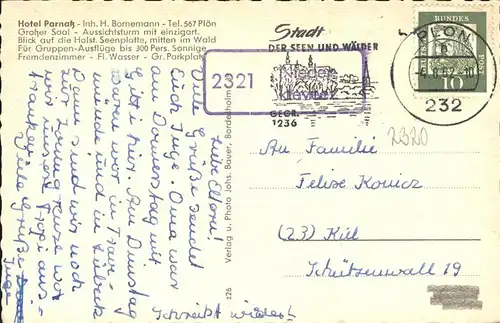 Hotel Parnaß - Inh. H. Bornemann - Tel. 567 Plön
Großer Saal - Aussichtsturm mit einzigart.
Blick auf die Holst. Seenplatte, mitten im Wald
Für Gruppen-Ausflüge bis 300 Pers. Sonnige
Fremdenzimmer - Fl. Wasser - Gr. Parkplatz
Stadt
DER SEEN UND WÄLDER
GEGR.
1236
2321
Nieder
kleveez
PLÖN
-4.6.62-10
232
DEUTSCHE BUNDES
10
2320
Liebe Eltern!
Viele Grüße sendet
Euch Inge. Oma war
am Donnerstag mit
Gitte hier. Am Dienstag
waren wir in Trave-
münde und in Lübeck
Dann sind wir noch
zur
wir unsere
tranken.
Viele Grüße
Inge
Schreibt wieder!
Verlag u. Photo Johs. Bauer, Bordesholm
z26
An Familie
Felix Konicz
(23) Kiel
Schützenwall 19